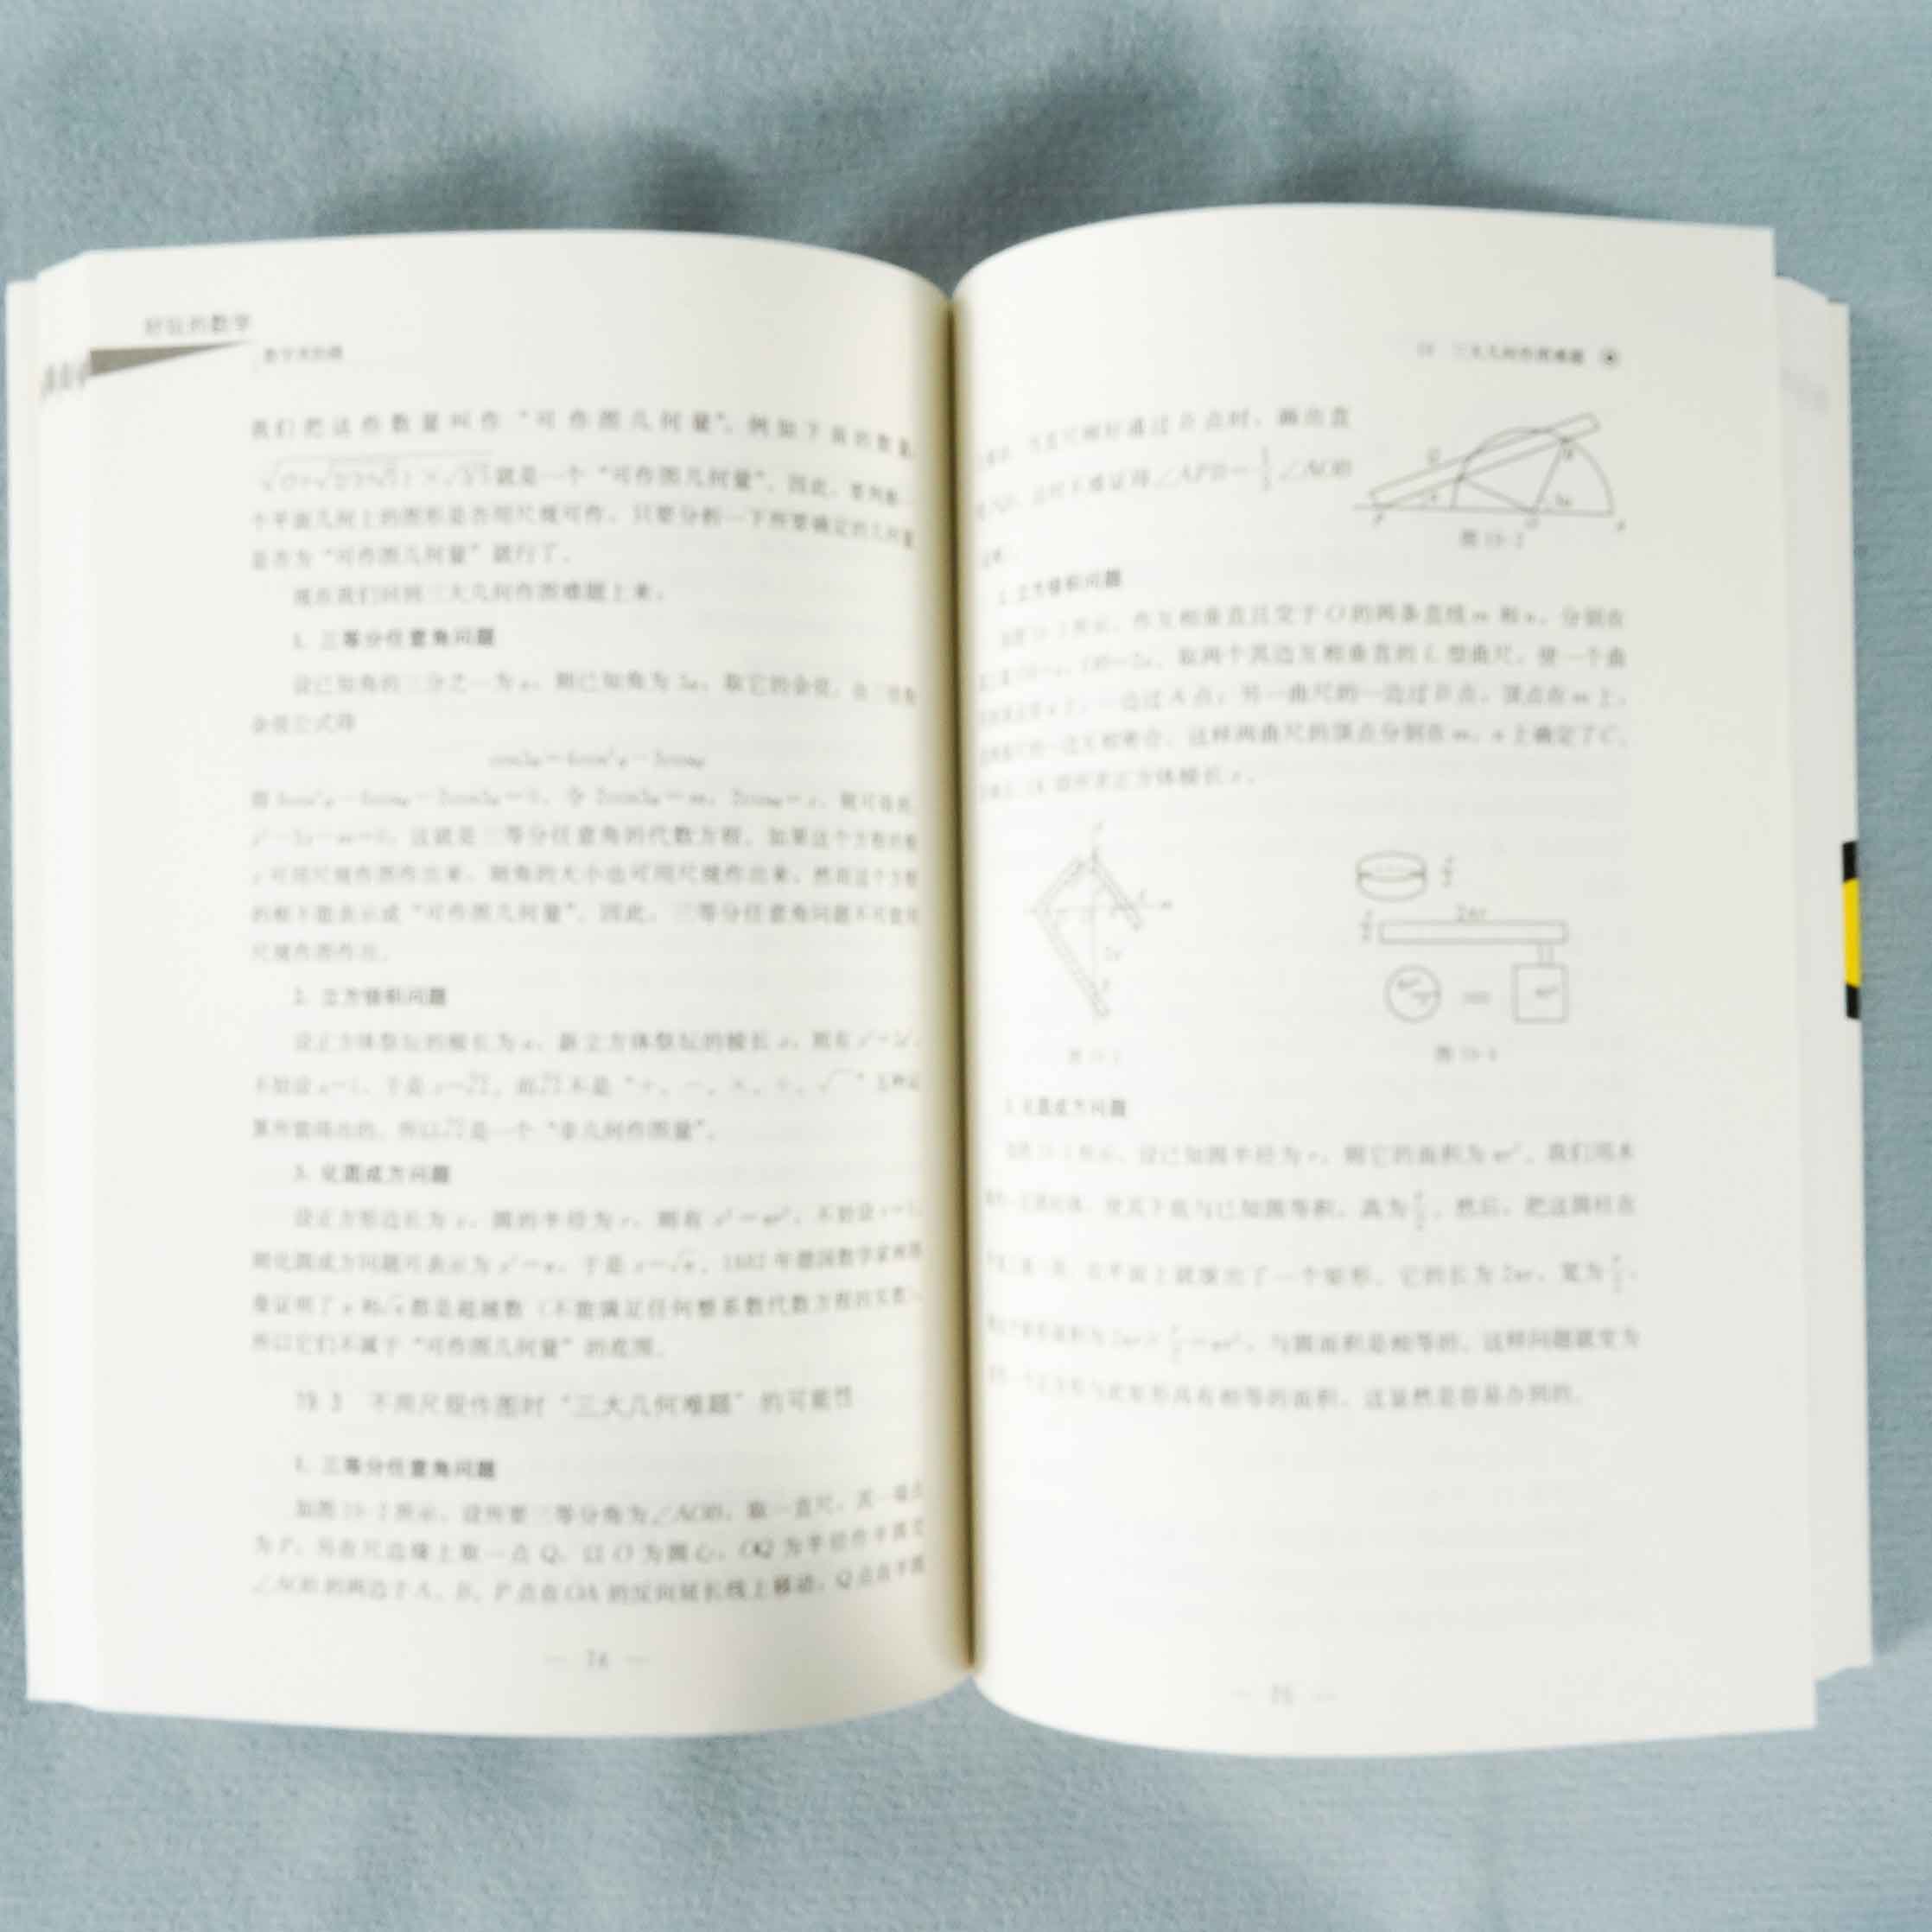 好玩的数学
数学美拾趣
我们把这些数量叫作“可作图几何量”。例如下面的数量
就是一个“可作图几何量”。因此，要判断一
个平面几何上的图形是否用尺规可作，只要分析一下所要确定的几何量
是否为“可作图几何量”就行了。
现在我们回到三大几何作图难题上来。
1. 三等分任意角问题
设已知角的三分之一为α，则已知角为3α，取它的余弦，由三倍角
余弦公式得
cos3α=4cos³α-3cosα
即8cos³α-6cosα-2cos3α=0，令2cos3α=m，2cosα=x，就可得到
x³-3x-m=0，这就是三等分任意角的代数方程。如果这个方程的根
x可用尺规作图作出来，则角的大小也可用尺规作出来。然而这个方程
的根不能表示成“可作图几何量”，因此，三等分任意角问题不可能用
尺规作图作出。
2. 立方倍积问题
设正方体祭坛的棱长为a，新立方体祭坛的棱长x，则有x³=2a³，
不妨设a=1，于是x=∛2，而∛2不是“+、-、×、÷、√”五种运
算所能得出的，所以∛2是一个“非几何作图量”。
3. 化圆成方问题
设正方形边长为x，圆的半径为r，则有x²=πr²，不妨设r=1，
则化圆成方问题可表示为x²=π，于是x=√π，1882年德国数学家林德
曼证明了π和√π都是超越数（不能满足任何整系数代数方程的实数），
所以它们不属于“可作图几何量”的范围。
19.3 不用尺规作图时“三大几何难题”的可能性
1. 三等分任意角问题
如图19-2所示，设所要三等分角为∠AOB，取一直尺，其一端点
为P，另在尺边缘上取一点Q，以O为圆心，OQ为半径作半圆交
∠AOB的两边于A、B，P点在OA的反向延长线上移动，Q点在半圆
— 74 —
19 三大几何作图难题
当直尺刚好通过B点时，画出直
这时不难证得∠APB=1/3∠AOB
图19-2
2. 立方倍积问题
如图19-3所示，作互相垂直且交于O的两条直线m和n，分别在
取两个其边互相垂直的L型曲尺，使一个曲
一边过A点；另一曲尺的一边过B点，顶点在m上，
一边互相密合，这样两曲尺的顶点分别在m，n上确定了C、
所求正方体棱长x。
r/2
2πr
r/2
πr² = πr²
图19-3
图19-4
3. 化圆成方问题
所示，设已知圆半径为r，则它的面积为πr²，我们用木
使其下底与已知圆等积，高为r/2，然后，把这圆柱在
在平面上就滚出了一个矩形，它的长为2πr，宽为r/2，
面积为2πr×r/2=πr²，与圆面积是相等的，这样问题就变为
与此矩形具有相等的面积，这显然是容易办到的。
— 75 —